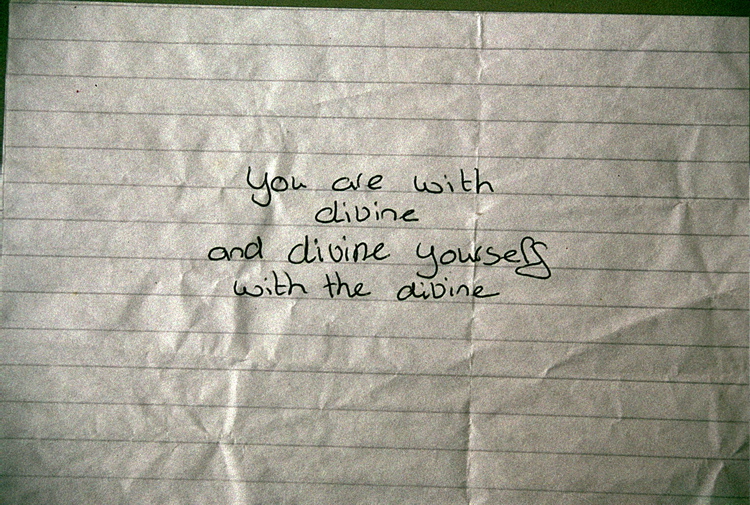 You are with
divine
and divine yourself
with the divine